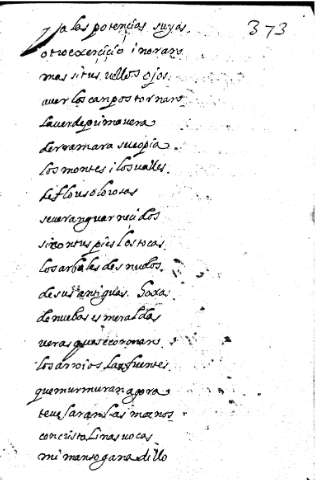 373
ya las potencias suyas
otro exerçiçio inoran
mas si tus vellos ojos
auer los canpos tornan
la uerde primauera
derramara su copia
los montes i los ualles
de flores olorosas
se ueran guarneçidos
si con tus pies los tocas
los arboles desnudos
de sus antiguas hoxas
de nuebas esmeraldas
veras que se coronan
los arroios las fuentes
que murmuran agora
te uesaran las manos
con cristalinas uocas
mi manso ganadillo